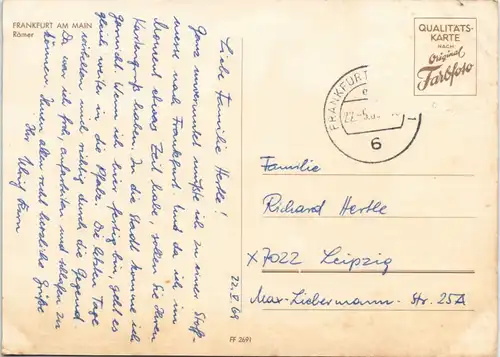 FRANKFURT AM MAIN
Römer
22.8.69
Liebe Familie Hertle!
Ganz unvermutet mußte ich zu einer Stoff-
messe nach Frankfurt. Und da ich im
Moment etwas Zeit habe, sollen Sie Ihren
Kartengruß haben. In die Stadt komme ich
garnicht. Wenn ich hier fertig bin geht es
gleich weiter in die Pfalz. Die letzten Tage
wirbelten uns richtig durch die Gegend
Da war ich froh, aufarbeiten und schlafen zu
können. Ihnen allen recht herzliche Grüße
Ihr
FF 2691
QUALITÄTS-
KARTE
NACH
Original
Farbfoto
FRANKFURT
6
Familie
Richard Hertle
X7022 Leipzig
Max-Liebermann-Str. 25A